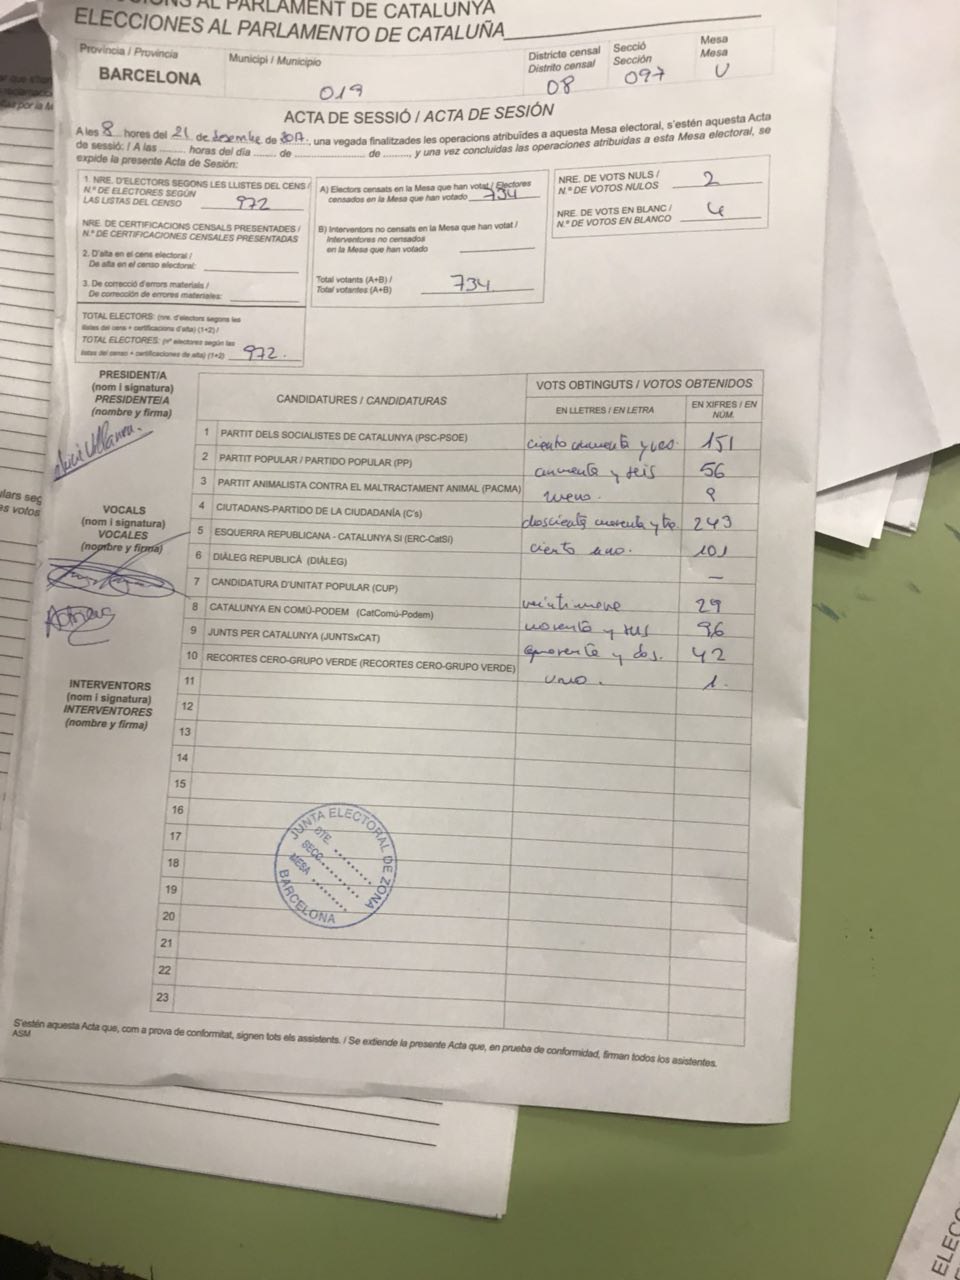 ELECCIONS AL PARLAMENT DE CATALUNYA
ELECCIONES AL PARLAMENTO DE CATALUÑA
Província / Provincia
BARCELONA
Municipi / Municipio
019
Districte censal
Distrito censal
08
Secció
Sección
097
Mesa
Mesa
U
ACTA DE SESSIÓ / ACTA DE SESIÓN
A les 8 hores del 21 de desembre de 2017, una vegada finalitzades les operacions atribuïdes a aquesta Mesa electoral, s'estén aquesta Acta
de sessió: / A las ......... horas del día ....... de ..................... de ........, y una vez concluidas las operaciones atribuidas a esta Mesa electoral, se
expide la presente Acta de Sesión:
1. NRE. D'ELECTORS SEGONS LES LLISTES DEL CENS /
N.º DE ELECTORES SEGÚN
LAS LISTAS DEL CENSO 972
NRE. DE CERTIFICACIONS CENSALS PRESENTADES /
N.º DE CERTIFICACIONES CENSALES PRESENTADAS
2. D'alta en el cens electoral /
De alta en el censo electoral:
3. De correcció d'errors materials /
De corrección de errores materiales:
TOTAL ELECTORS: (nre. d'electors segons les
llistes del cens + certificacions d'alta) (1+2) /
TOTAL ELECTORES: (nº electores según las
listas del censo + certificaciones de alta) (1+2) 972.
A) Electors censats en la Mesa que han votat / Electores
censados en la Mesa que han votado 734
B) Interventors no censats en la Mesa que han votat /
Interventores no censados
en la Mesa que han votado
Total votants (A+B) /
Total votantes (A+B) 734
NRE. DE VOTS NULS /
N.º DE VOTOS NULOS 2
NRE. DE VOTS EN BLANC /
N.º DE VOTOS EN BLANCO 4
PRESIDENT/A
(nom i signatura)
PRESIDENTE/A
(nombre y firma)
VOCALS
(nom i signatura)
VOCALES
(nombre y firma)
INTERVENTORS
(nom i signatura)
INTERVENTORES
(nombre y firma)
CANDIDATURES / CANDIDATURAS
VOTS OBTINGUTS / VOTOS OBTENIDOS
EN LLETRES / EN LETRA
EN XIFRES / EN
NÚM.
1 PARTIT DELS SOCIALISTES DE CATALUNYA (PSC-PSOE) 151
2 PARTIT POPULAR / PARTIDO POPULAR (PP) cincuenta y seis 56
3 PARTIT ANIMALISTA CONTRA EL MALTRACTAMENT ANIMAL (PACMA) nueve. 9
4 CIUTADANS-PARTIDO DE LA CIUDADANÍA (C's) 243
5 ESQUERRA REPUBLICANA - CATALUNYA SÍ (ERC-CatSí) ciento uno. 101
6 DIÀLEG REPUBLICÀ (DIÀLEG) —
7 CANDIDATURA D'UNITAT POPULAR (CUP) veintinueve 29
8 CATALUNYA EN COMÚ-PODEM (CatComú-Podem) noventa y seis 96
9 JUNTS PER CATALUNYA (JUNTSxCAT) cuarenta y dos. 42
10 RECORTES CERO-GRUPO VERDE (RECORTES CERO-GRUPO VERDE) uno. 1.
11
12
13
14
15
16
17
18
19
20
21
22
23
JUNTA ELECTORAL DE ZONA
DTE.
SECC.
MESA
BARCELONA
S'estén aquesta Acta que, com a prova de conformitat, signen tots els assistents. / Se extiende la presente Acta que, en prueba de conformidad, firman todos los asistentes.
ASM